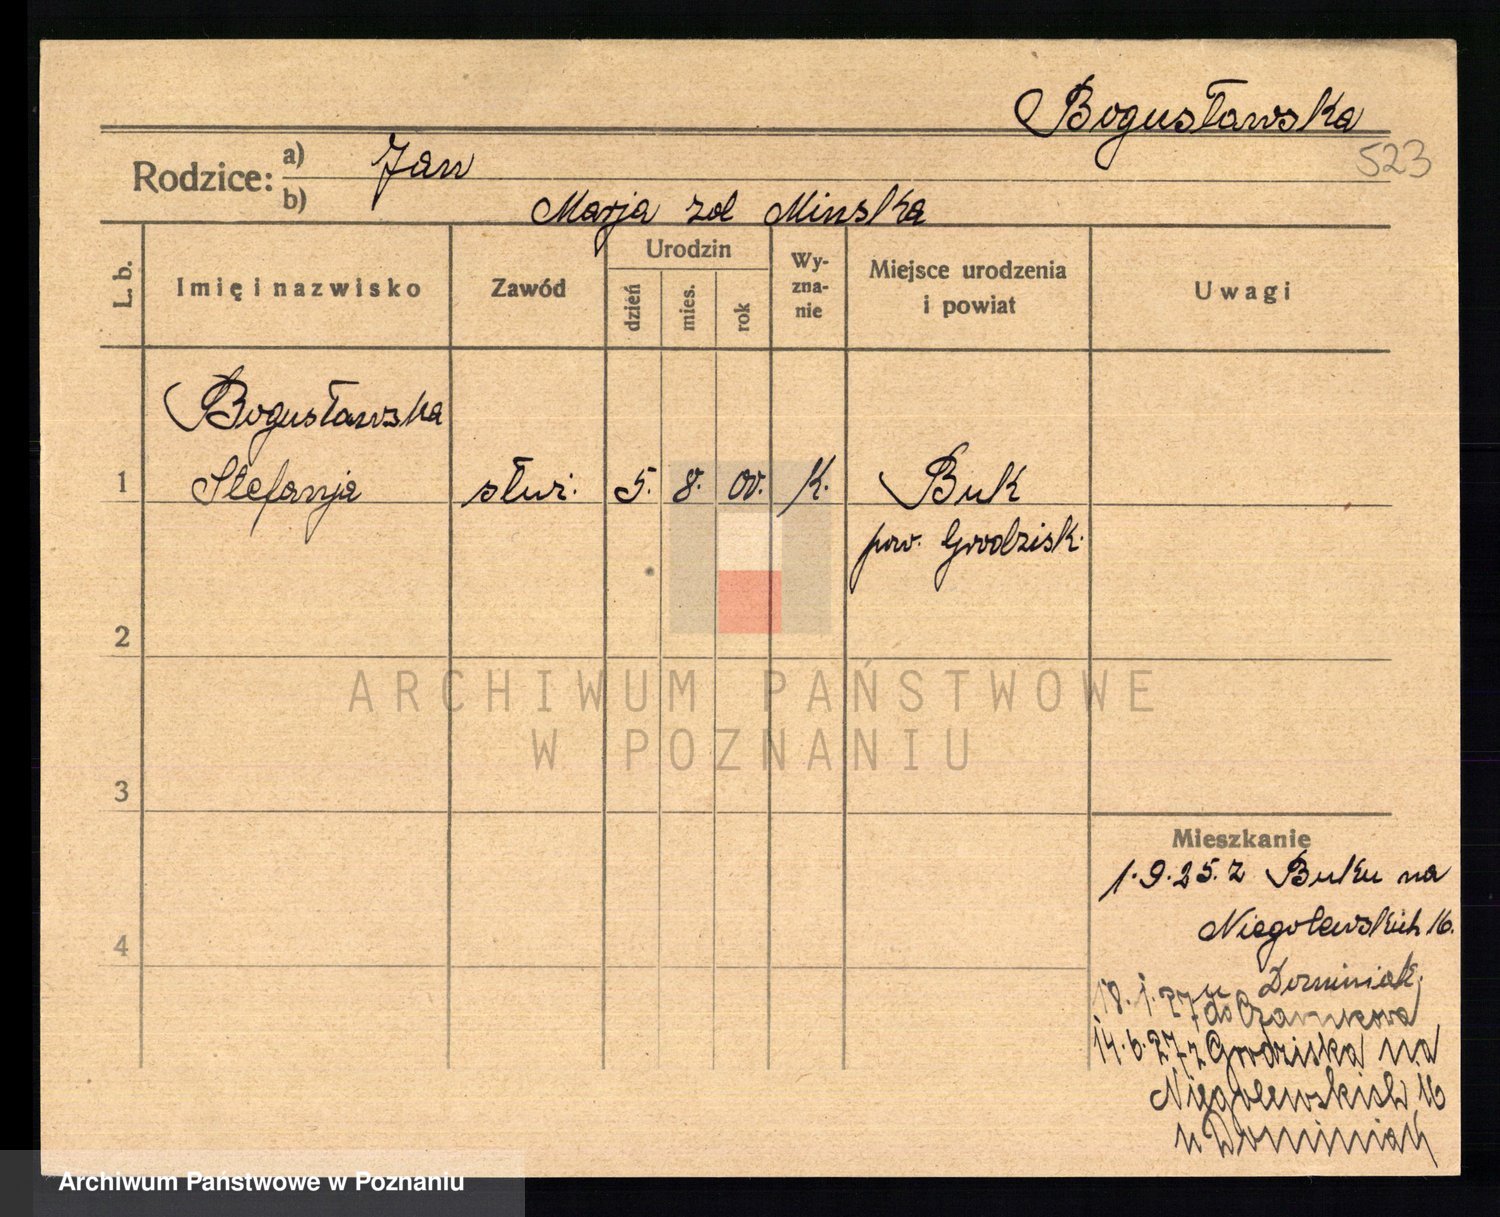 Bogusławska
523
Rodzice: a) Jan
b) Marja zd Minska
L. b.
Imię i nazwisko
Zawód
Urodzin
dzień
mies.
rok
Wy-
zna-
nie
Miejsce urodzenia
i powiat
Uwagi
Bogusławska
1 Stefanja służ. 5. 8. 00. K. Buk
pow. Grodzisk.
2
3
4
Mieszkanie
1.9.25. z Buku na
Niegolewskich 16.
u Dominiak.
18.1.27 do Czarnkowa
14.6.27 z Grodziska na
Niegolewskich 16
u Dominiak
ARCHIWUM PAŃSTWOWE
W POZNANIU
Archiwum Państwowe w Poznaniu